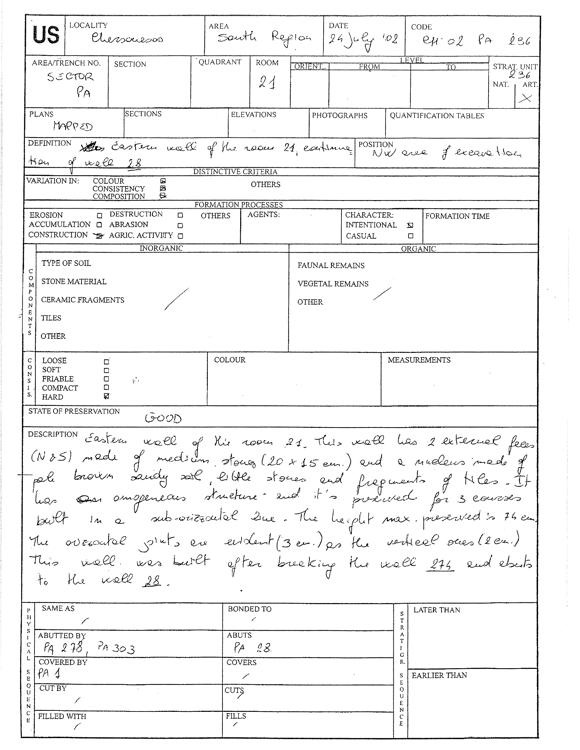 US
LOCALITY
Chersonesos
AREA
South Region
DATE
24 July '02
CODE
CH '02 PA 236
AREA/TRENCH NO.
SECTOR
PA
SECTION
QUADRANT
ROOM
21
LEVEL
ORIENT. FROM TO
STRAT. UNIT
236
NAT. ART.
X
PLANS
MAPPED
SECTIONS
ELEVATIONS
PHOTOGRAPHS
QUANTIFICATION TABLES
DEFINITION Eastern wall of the room 21, continua
tion of wall 28
POSITION
NW area of excavation
DISTINCTIVE CRITERIA
VARIATION IN: COLOUR
CONSISTENCY
COMPOSITION
OTHERS
FORMATION PROCESSES
EROSION DESTRUCTION OTHERS
ACCUMULATION ABRASION
CONSTRUCTION AGRIC. ACTIVITY
AGENTS:
CHARACTER:
INTENTIONAL
CASUAL
FORMATION TIME
COMPONENTS
INORGANIC
TYPE OF SOIL
STONE MATERIAL
CERAMIC FRAGMENTS
TILES
OTHER
ORGANIC
FAUNAL REMAINS
VEGETAL REMAINS
OTHER
CONSIS.
LOOSE
SOFT
FRIABLE
COMPACT
HARD
COLOUR
MEASUREMENTS
STATE OF PRESERVATION
GOOD
DESCRIPTION Eastern wall of the room 21. This wall has 2 external faces
(N & S) made of medium stones (20 x 15 cm.) and a nucleus made of
pale brown sandy soil, little stones and fragments of tiles. It
has omogeneous structure and it's preserved for 3 courses
built in a sub-orizontal line. The height max. preserved is 74 cm.
The orizontal joints are evident (3 cm.) as the vertical ones (2 cm.)
This wall was built after breaking the wall 274 and abuts
to the wall 28.
PHYSICAL SEQUENCE
SAME AS
BONDED TO
ABUTTED BY
PA 278, PA 303
ABUTS
PA 28
COVERED BY
PA 1
COVERS
CUT BY
CUTS
FILLED WITH
FILLS
STRATIGR. SEQUENCE
LATER THAN
EARLIER THAN